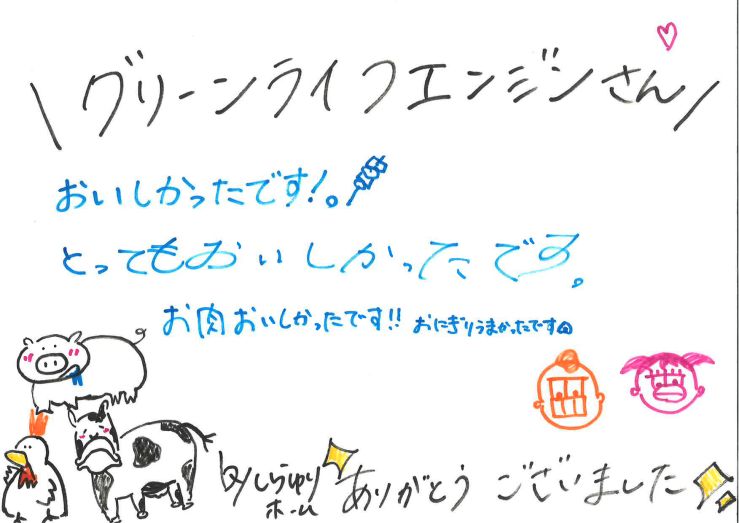 \グリーンライフエンジンさん/
おいしかったです!。
とってもおいしかったです。
お肉おいしかったです!! おにぎりうまかったです
by しらゆりホーム ありがとうございました